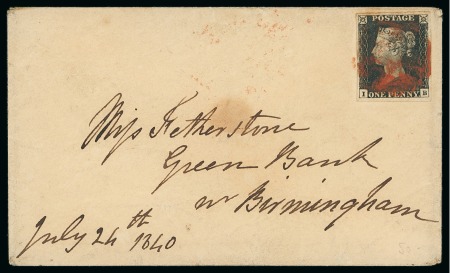 POSTAGE
I B
ONE PENNY
Miss Fetherstone
Green Bank
nr Birmingham
July 24th 1840